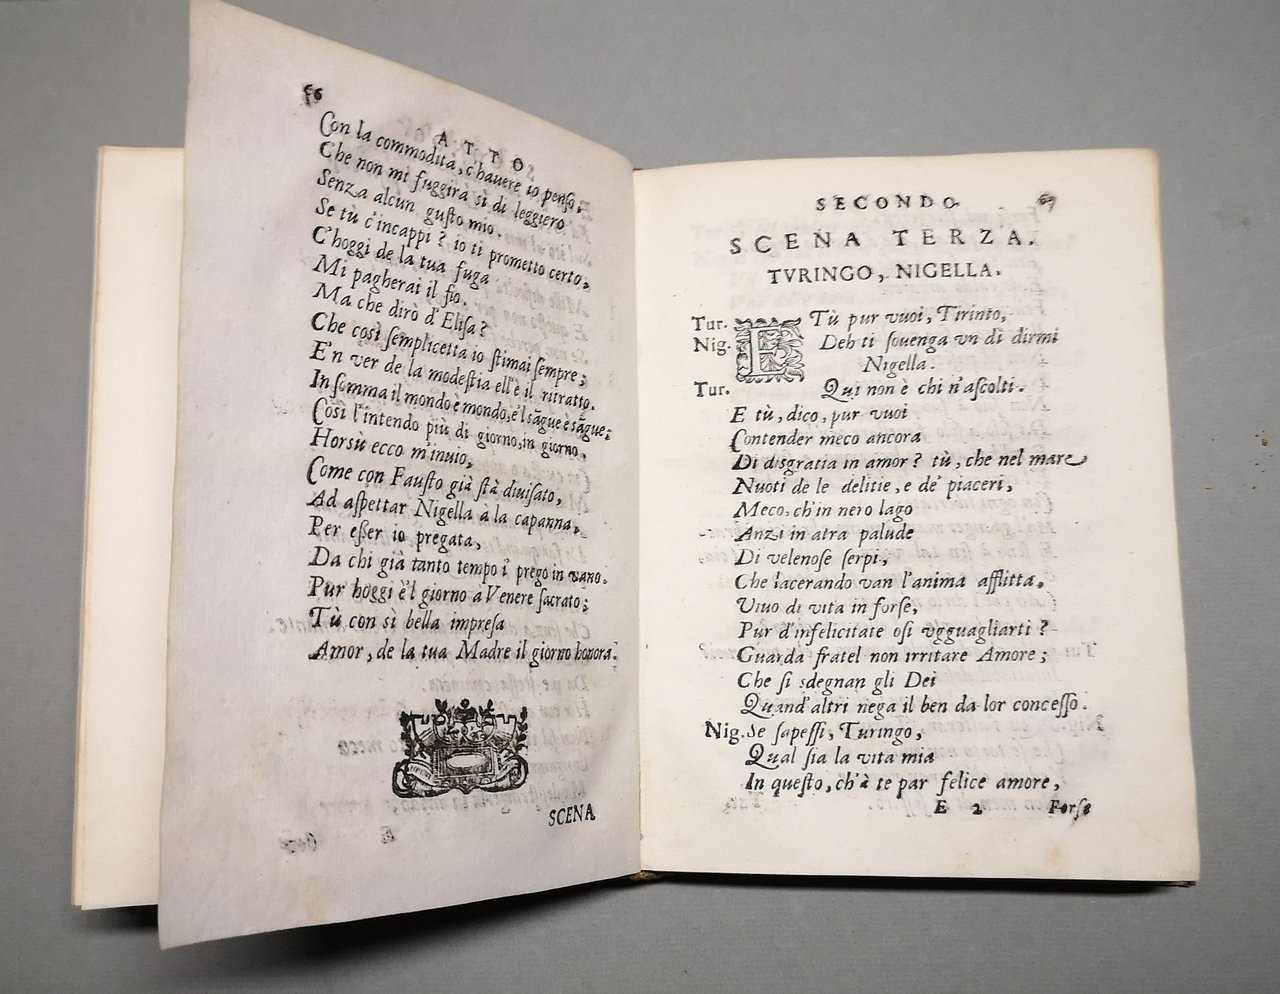 66
ATTO
Con la commodità, c'hauere io penso,
Che non mi fuggirà sì di leggiero
Senza alcun gusto mio.
Se tù c'incappi? io ti prometto certo,
C'hoggi de la tua fuga
Mi pagherai il fio.
Ma che dirò d'Elisa?
Che così semplicetta io stimai sempre;
E'n ver de la modestia ell'è il ritratto.
In somma il mondo è mondo, e'l sãgue è sãgue;
Così l'intendo più di giorno, in giorno.
Horsù ecco m'inuio,
Come con Fausto già stà diuisato,
Ad aspettar Nigella à la capanna,
Per esser io pregata,
Da chi già tanto tempo i prego in vano.
Pur hoggi è'l giorno a Venere sacrato;
Tù con sì bella impresa
Amor, de la tua Madre il giorno honora.
SCENA
SECONDO. 67
SCENA TERZA.
TVRINGO, NIGELLA.
Tur. E Tù pur vuoi, Tirinto,
Nig. Deh ti souenga vn dì dirmi
Nigella.
Tur. Qui non è chi n'ascolti.
E tù, dico, pur vuoi
Contender meco ancora
Di disgratia in amor? tù, che nel mare
Nuoti de le delitie, e de' piaceri,
Meco, ch'in nero lago
Anzi in atra palude
Di velenose serpi,
Che lacerando van l'anima afflitta,
Viuo di vita in forse,
Pur d'infelicitate osi vgguagliarti?
Guarda fratel non irritare Amore;
Che si sdegnan gli Dei
Quand'altri nega il ben da lor concesso.
Nig. Se sapessi, Turingo,
Qual sia la vita mia
In questo, ch'à te par felice amore,
E 2 Forse